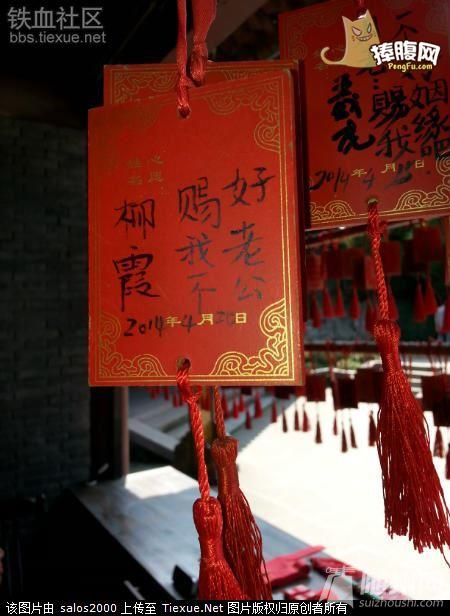 铁血社区
bbs.tiexue.net
捧腹网
PengFu.com
心愿
姓名
柳霞
赐我不
好老公
2014年4月20日
赐我
姻缘吧
2014年4月
suizhoushi.com
该图片由 salos2000 上传至 Tiexue.Net 图片版权归原创者所有